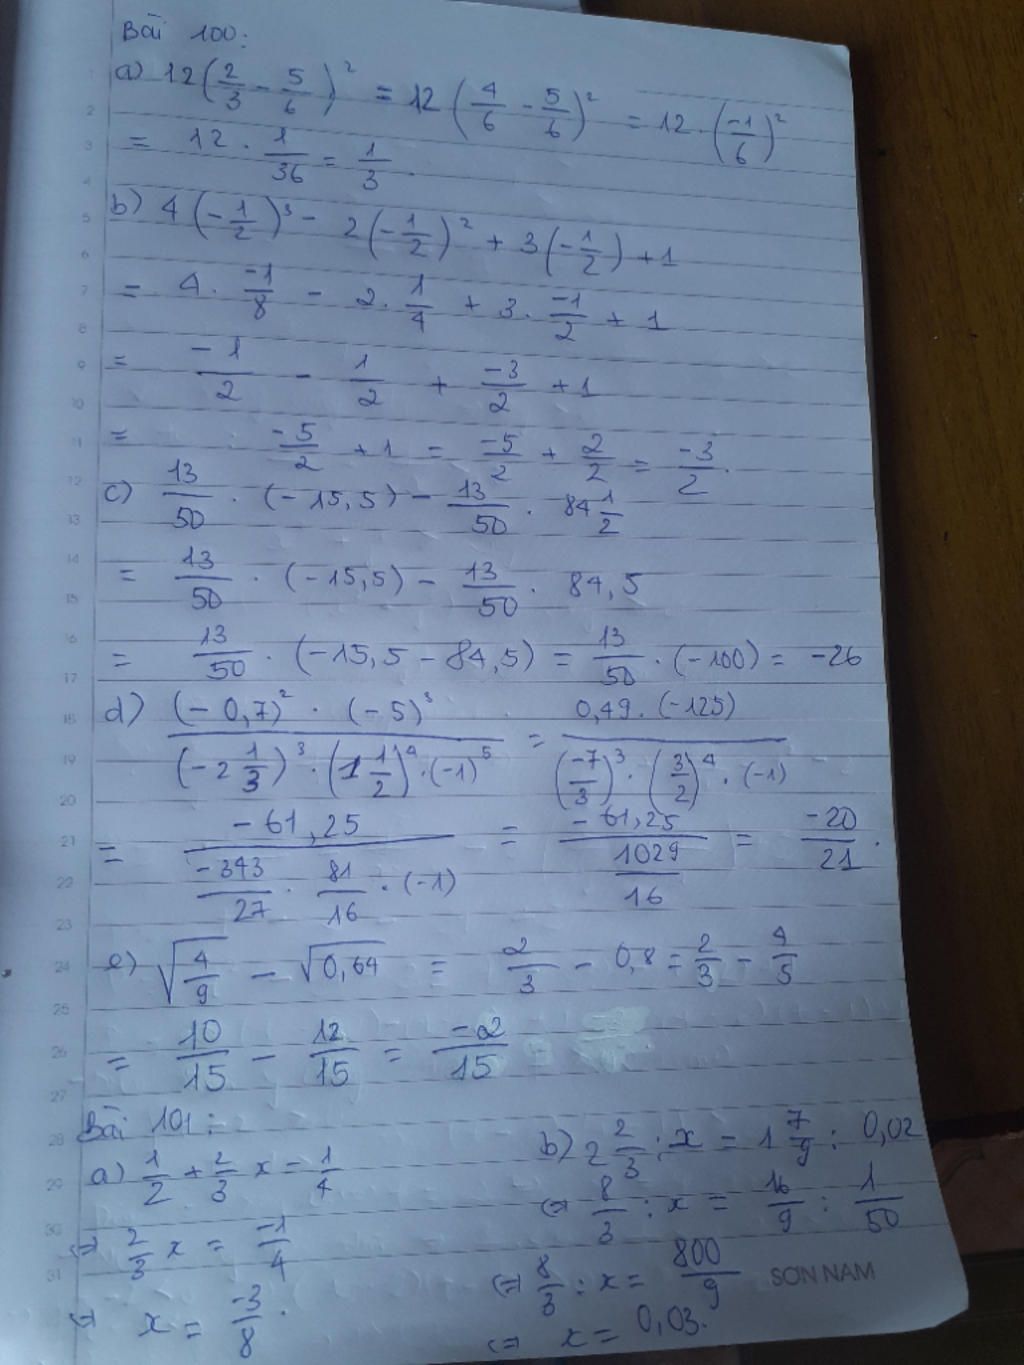 Bài 100:
a) 12(2/3 - 5/6)² = 12(4/6 - 5/6)² = 12.(-1/6)²
= 12 . 1/36 = 1/3.
b) 4(-1/2)³ - 2(-1/2)² + 3(-1/2) + 1
= 4 . -1/8 - 2 . 1/4 + 3 . -1/2 + 1
= -1/2 - 1/2 + -3/2 + 1
= -5/2 + 1 = -5/2 + 2/2 = -3/2.
c) 13/50 . (-15,5) - 13/50 . 84 1/2
= 13/50 . (-15,5) - 13/50 . 84,5
= 13/50 . (-15,5 - 84,5) = 13/50 . (-100) = -26
d) ((-0,7)² . (-5)³)/((-2 1/3)³ . (1 1/2)⁴ . (-1)⁵) = (0,49 . (-125))/((-7/3)³ . (3/2)⁴ . (-1))
= (-61,25)/(-343/27 . 81/16 . (-1)) = (-61,25)/(1029/16) = -20/21.
e) √(4/9) - √0,64 = 2/3 - 0,8 = 2/3 - 4/5
= 10/15 - 12/15 = -2/15
Bài 101:
a) 1/2 + 2/3 x = 1/4
⇔ 2/3 x = -1/4
⇔ x = -3/8.
b) 2 2/3 : x = 1 7/9 : 0,02
⇔ 8/3 : x = 16/9 : 1/50
⇔ 8/3 : x = 800/9
⇔ x = 0,03.
SON NAM
1
2
3
4
5
6
7
8
9
10
11
12
13
14
15
16
17
18
19
20
21
22
23
24
25
26
27
28
29
30
31